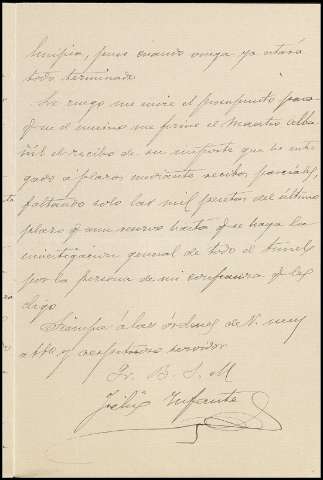 limpia, pues cuando venga ya estará
todo terminado
Le ruego me envie el presupuesto para
q. en el mismo me firme el Maestro Alba-
ñil el recibo de su importe que he entre-
gado á plazos mediante recibos parciales,
faltando solo las mil pesetas del último
plazo q. me reservo hasta q. se haga la
investigacion general de todo el tunel
por la persona de mi confianza q. les
digo.
Siempre á las órdenes de V. muy
atto. y respetuoso servidor
Q. B. S. M
Felix Infante